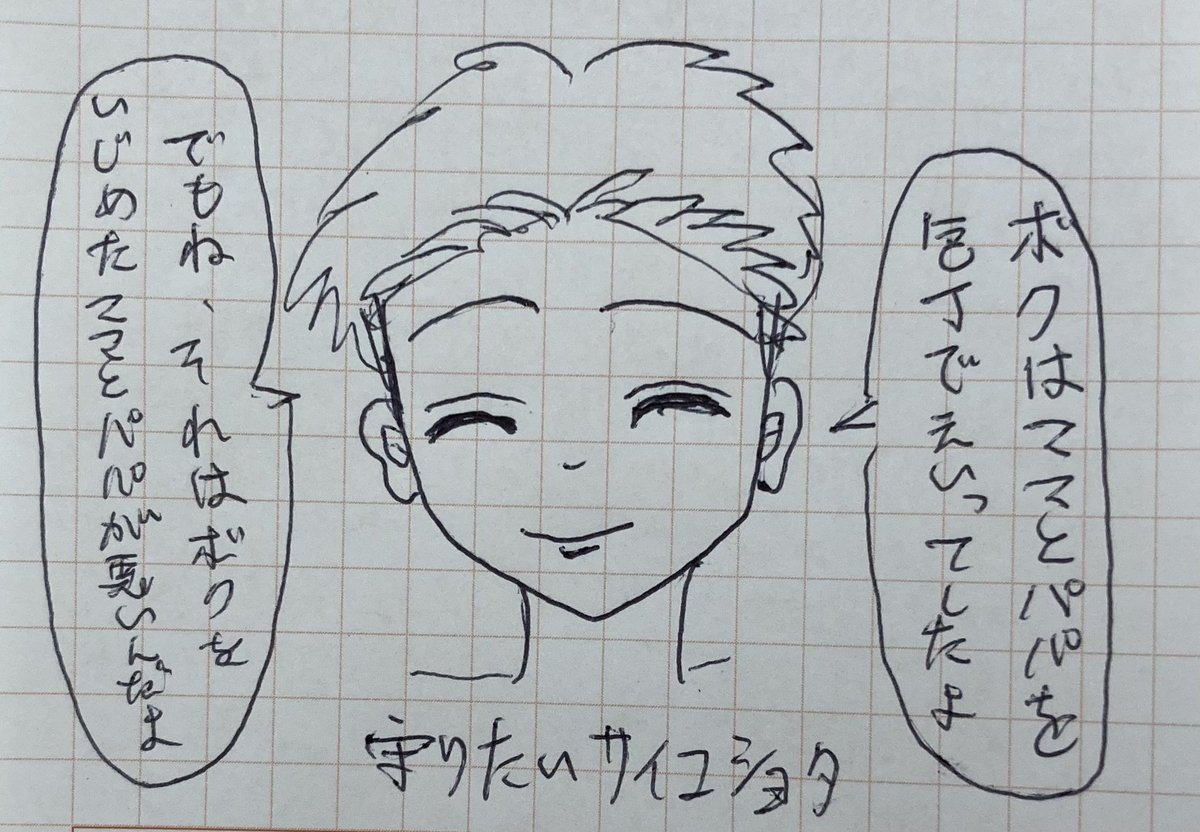 ボクはママとパパを
包丁でえいってしたよ
でもね、それはボクを
いじめたママとパパが悪いんだよ
守りたいサイコショタ